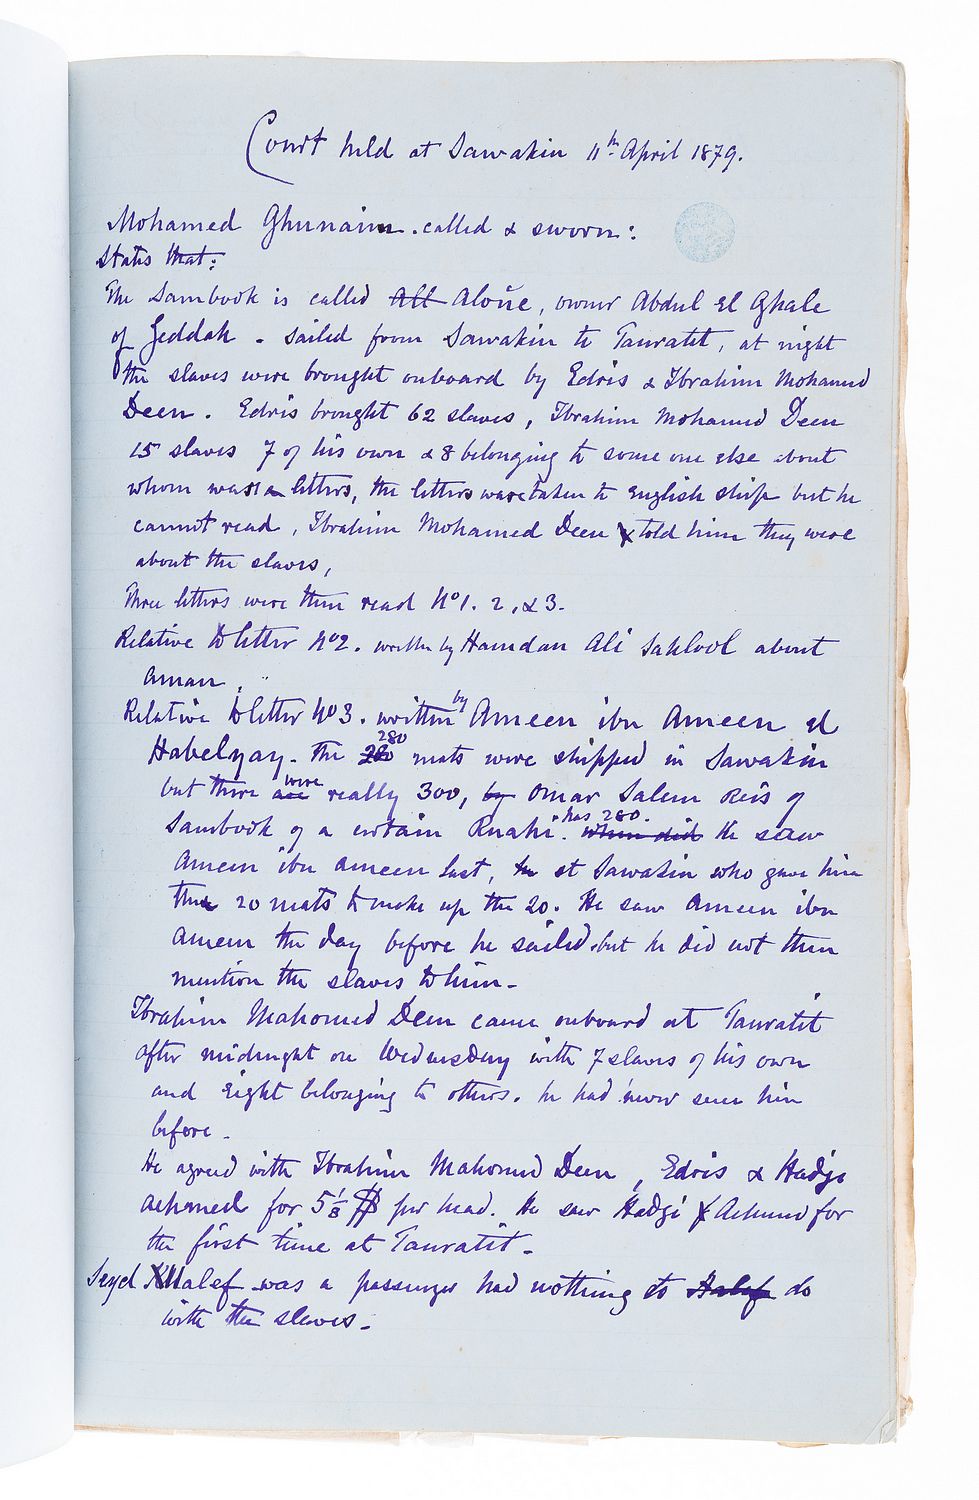 Court held at Sawakin 11th April 1879.
Mohamed Ghunaim. called & sworn:
States that:
The Sambook is called All Aloûe, owner Abdul El Ghale
of Jeddah. Sailed from Sawakin to Tauratit, at night
the slaves were brought onboard by Edris & Ibrahim Mohamed
Deen. Edris brought 62 slaves, Ibrahim Mohamed Deen
15 slaves 7 of his own & 8 belonging to some one else about
whom was a letters, the letters were taken to English ship but he
cannot read, Ibrahim Mohamed Deen told him they were
about the slaves,
Three letters were then read No1. 2, & 3.
Relative to letter No2. written by Hamdan Ali Sahlool about
Aman.
Relative to letter No3. written by Ameen ibn Ameen el
Habelyay. The 280 280 mats were shipped in Sawakin
but there are were really 300, by Omar Salem Reis of
Sambook of a certain Ruahi. has 280. When did He saw
Ameen ibn Ameen last, at Sawakin who gave him
the 20 mats to make up the 20. He saw Ameen ibn
Ameen the day before he sailed. but he did not then
mention the slaves to him.
Ibrahim Mahomed Deen came onboard at Tauratit
after midnight on Wednesday with 7 slaves of his own
and Eight belonging to others. he had never seen him
before.
He agreed with Ibrahim Mahomed Deen, Edris & Hadji
Achmed for 5 1/8 $ per head. He saw Hadgi Achmed for
the first time at Tauratit.
Seyd Khalef was a passenger had nothing to Halef do
with the slaves.